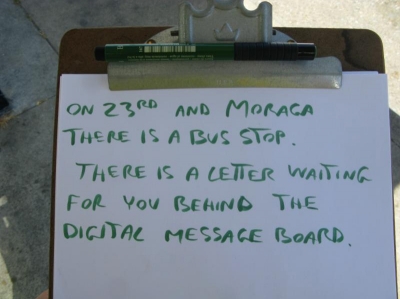 ON 23RD AND MORAGA
THERE IS A BUS STOP.
THERE IS A LETTER WAITING
FOR YOU BEHIND THE
DIGITAL MESSAGE BOARD.